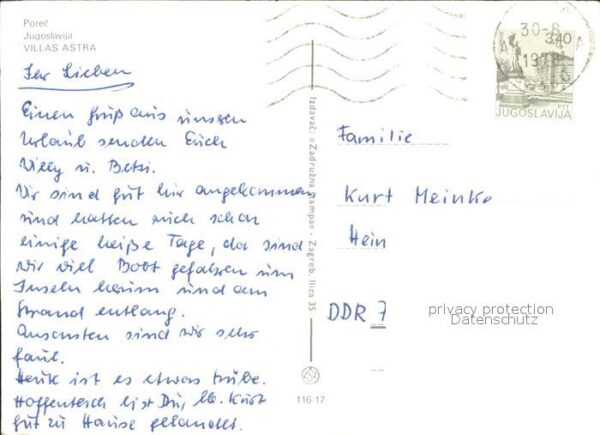 Poreč
Jugoslavija
VILLAS ASTRA
Ihr Lieben
Einen Gruß aus unsren
Urlaub senden Euch
Willy u. Betsi.
Wir sind gut hier angekommen
und hatten auch schon
einige heiße Tage, da sind
wir viel Boot gefahren um
Inseln herum und am
Strand entlang.
Ansonsten sind wir sehr
faul.
Heute ist es etwas trübe.
Hoffentlich bist Du, lb. Kurt
gut zu Hause gelandet.
Izdavač: »Zadružna štampa« - Zagreb, Ilica 35
116-17
30-8
1978
3.40
JUGOSLAVIJA
Familie
Kurt Meinke
Hein
DDR 7
privacy protection
Datenschutz